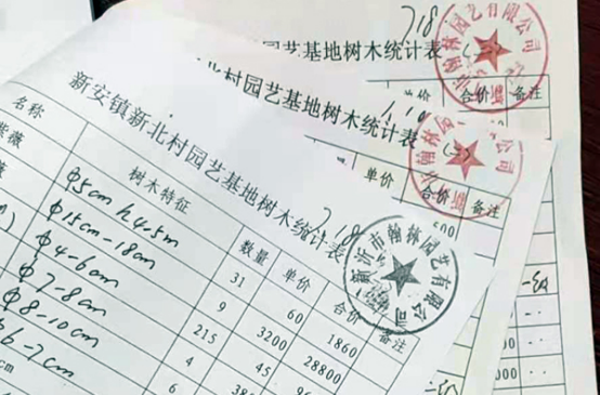 718
园艺基地树木统计表(三)
翰林园艺有限公司
单价 合价 备注
北村园艺基地树木统计表(二)
翰林园艺有限公司
单价 合价 备注
500
新安镇新北村园艺基地树木统计表
718
新沂市翰林园艺有限公司
名称 树木特征 数量 单价 合价 备注
紫薇 φ5cm h4-5m 31 60 1860
薇 φ15cm-18cm 9 3200 28800
φ4-6cm 215 45
φ7-8cm 4
φ8-10cm 6
6-7cm
000